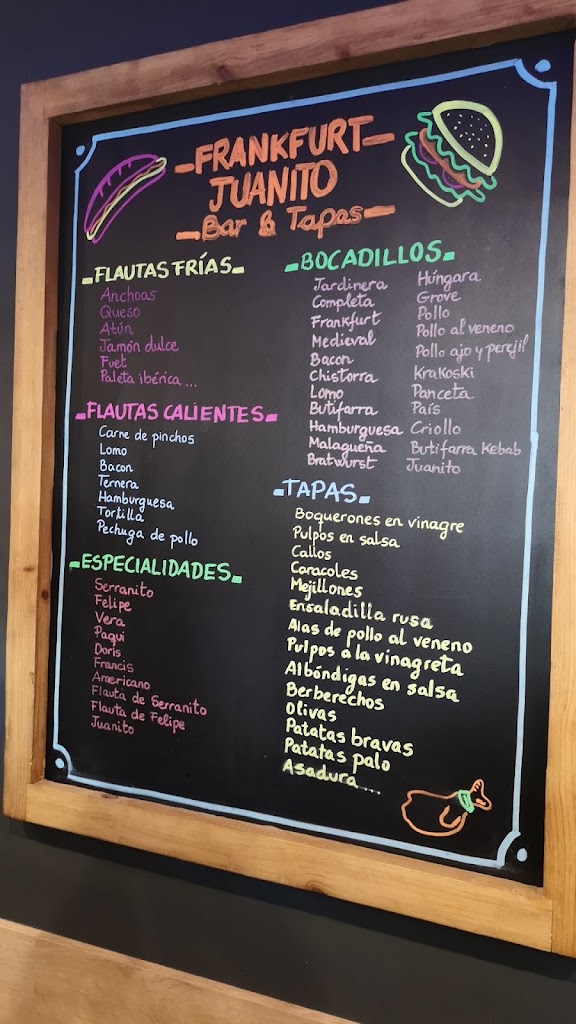 FRANKFURT
JUANITO
Bar & Tapas
FLAUTAS FRÍAS
Anchoas
Queso
Atún
Jamón dulce
Fuet
Paleta ibérica...
FLAUTAS CALIENTES
Carne de pinchos
Lomo
Bacon
Ternera
Hamburguesa
Tortilla
Pechuga de pollo
ESPECIALIDADES
Serranito
Felipe
Vera
Paqui
Doris
Francis
Americano
Flauta de Serranito
Flauta de Felipe
Juanito
BOCADILLOS
Jardinera
Completa
Frankfurt
Medieval
Bacon
Chistorra
Lomo
Butifarra
Hamburguesa
Malagueña
Bratwurst
Húngara
Grove
Pollo
Pollo al veneno
Pollo ajo y perejil
Krakoski
Panceta
País
Criollo
Butifarra Kebab
Juanito
TAPAS
Boquerones en vinagre
Pulpos en salsa
Callos
Caracoles
Mejillones
Ensaladilla rusa
Alas de pollo al veneno
Pulpos a la vinagreta
Albóndigas en salsa
Berberechos
Olivas
Patatas bravas
Patatas palo
Asadura...